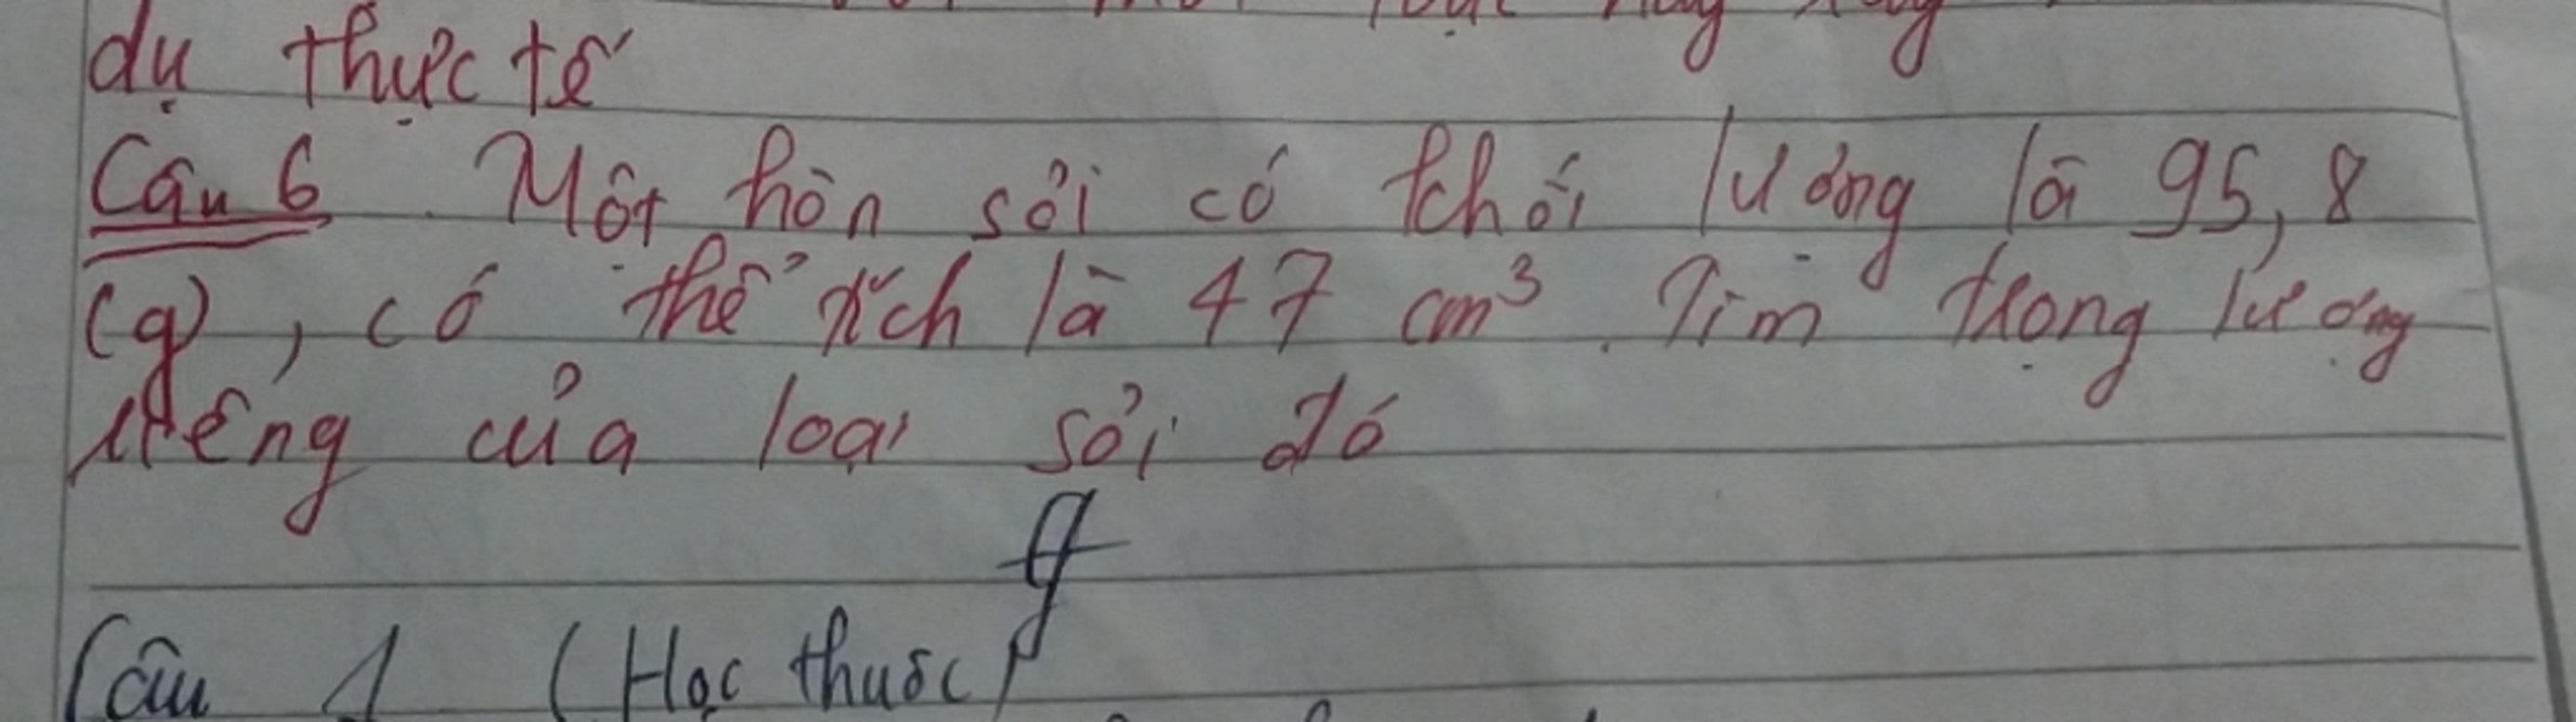 dụ thực tế
Câu 6 Một hòn sỏi có khối lượng là 95,8
(g), có thể tích là 47 cm³. Tìm trọng lượng
riêng của loại sỏi đó
Câu 1 (Học thuộc)